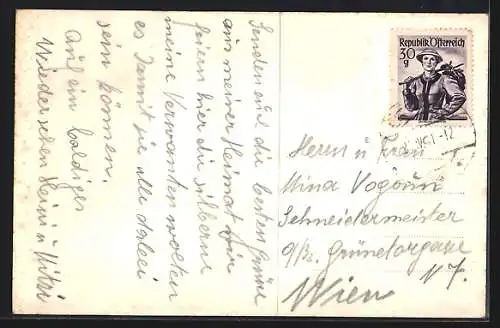 Senden euch die besten Grüße
aus meiner Heimat wir
feiern hier die silberne
meine Verwanten wollten
es damit sie alle dabei
sein können.
Auf ein baldiges
Wiedersehen Heini u Mitzi
Republik Österreich
30
g
Herrn u Frau
Mina
Schneidermeister
Grünetorgasse
Wien